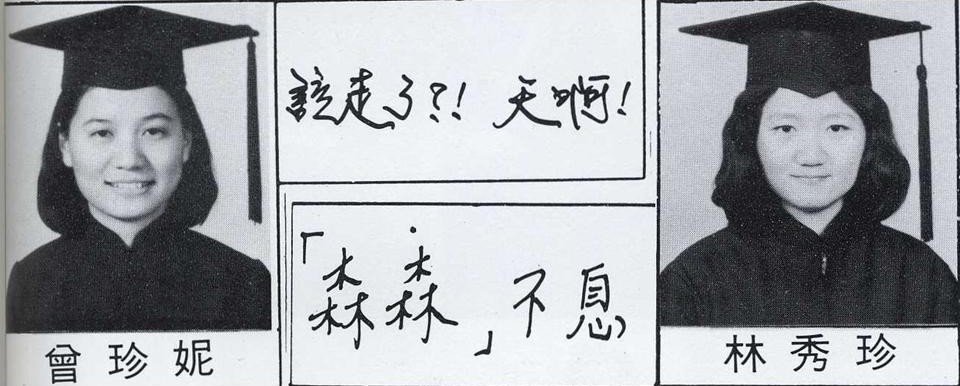 該走了?! 天啊!
「森森」不息
曾珍妮
林秀珍